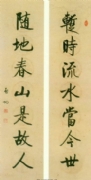 暫時流水當今世
隨地春山是故人